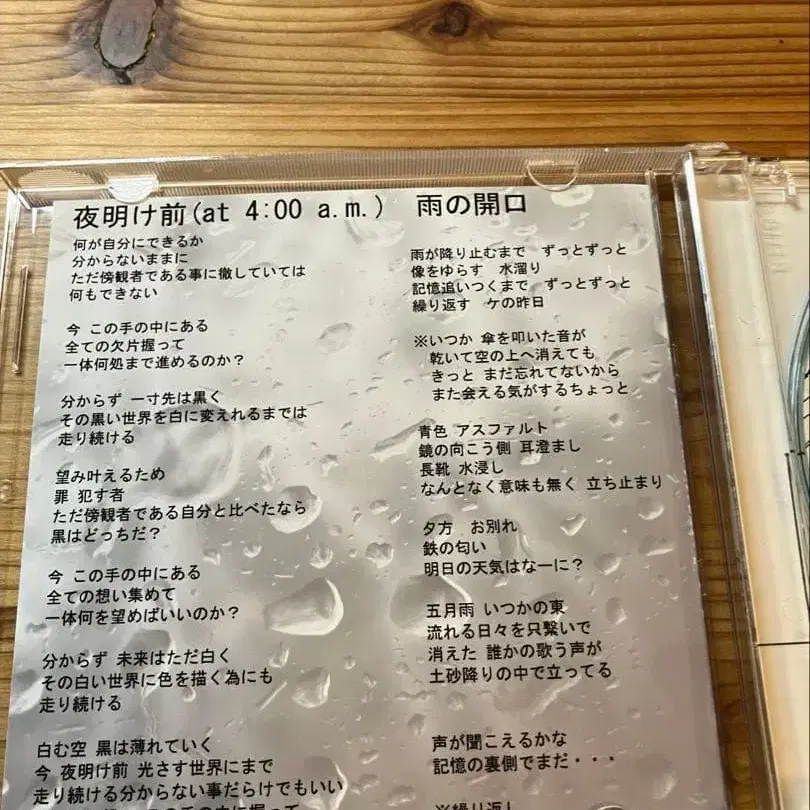 夜明け前(at 4:00 a.m.)
何が自分にできるか
分からないままに
ただ傍観者である事に徹していては
何もできない
今 この手の中にある
全ての欠片握って
一体何処まで進めるのか？
分からず 一寸先は黒く
その黒い世界を白に変えれるまでは
走り続ける
望み叶えるため
罪 犯す者
ただ傍観者である自分と比べたなら
黒はどっちだ？
今 この手の中にある
全ての想い集めて
一体何を望めばいいのか？
分からず 未来はただ白く
その白い世界に色を描く為にも
走り続ける
白む空 黒は薄れていく
今 夜明け前 光さす世界にまで
走り続ける分からない事だらけでもいい
の手の中に握って
雨の開口
雨が降り止むまで　ずっとずっと
像をゆらす　水溜り
記憶追いつくまで　ずっとずっと
繰り返す　ケの昨日
※いつか 傘を叩いた音が
乾いて空の上へ消えても
きっと まだ忘れてないから
また会える気がするちょっと
青色 アスファルト
鏡の向こう側 耳澄まし
長靴 水浸し
なんとなく意味も無く 立ち止まり
夕方　お別れ
鉄の匂い
明日の天気はなーに？
五月雨 いつかの東
流れる日々を只繋いで
消えた 誰かの歌う声が
土砂降りの中で立ってる
声が聞こえるかな
記憶の裏側でまだ・・・
※繰り返し